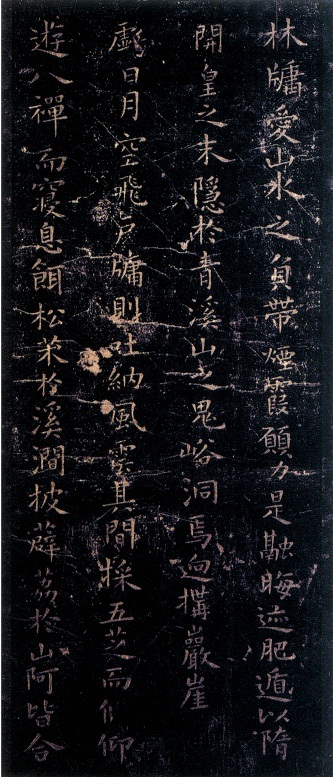 林牖愛山水之負帶煙霞願力是融晦迹肥遁以隋
開皇之末隱於青溪山之鬼峪洞焉逈搆巖崖
虧日月空飛戶牖則吐納風雲其間採五芝而仰
遊八禪而寢息餌松荣於溪澗披薜荔於山阿皆合